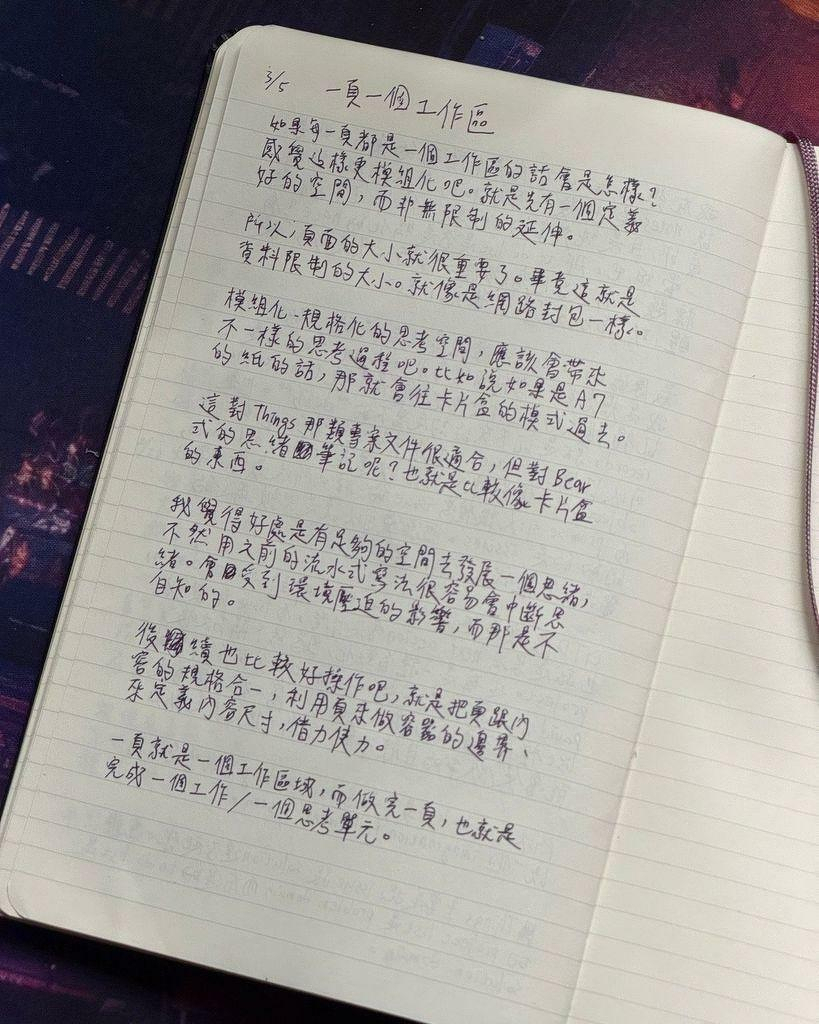 3/5 一頁一個工作區
如果每一頁都是一個工作區的話會是怎樣?
感覺這樣更模組化吧。就是先有一個定義
好的空間,而非無限制的延伸。
所以,頁面的大小就很重要了。畢竟這就是
資料限制的大小。就像是網路封包一樣。
模組化、規格化的思考空間,應該會帶來
不一樣的思考過程吧。比如說如果是A7
的紙的話,那就會往卡片盒的模式過去。
這對Things那類專案文件很適合,但對Bear
式的思緒筆記呢?也就是比較像卡片盒
的東西。
我覺得好處是有足夠的空間去發展一個思緒,
不然用之前的流水式寫法很容易會中斷思
緒。會受到環境壓迫的影響,而那是不
自知的。
後續也比較好操作吧,就是把頁跟內
容的規格合一,利用頁來做容器的邊界、
來定義內容尺寸,借力使力。
一頁就是一個工作區域,而做完一頁,也就是
完成一個工作/一個思考單元。